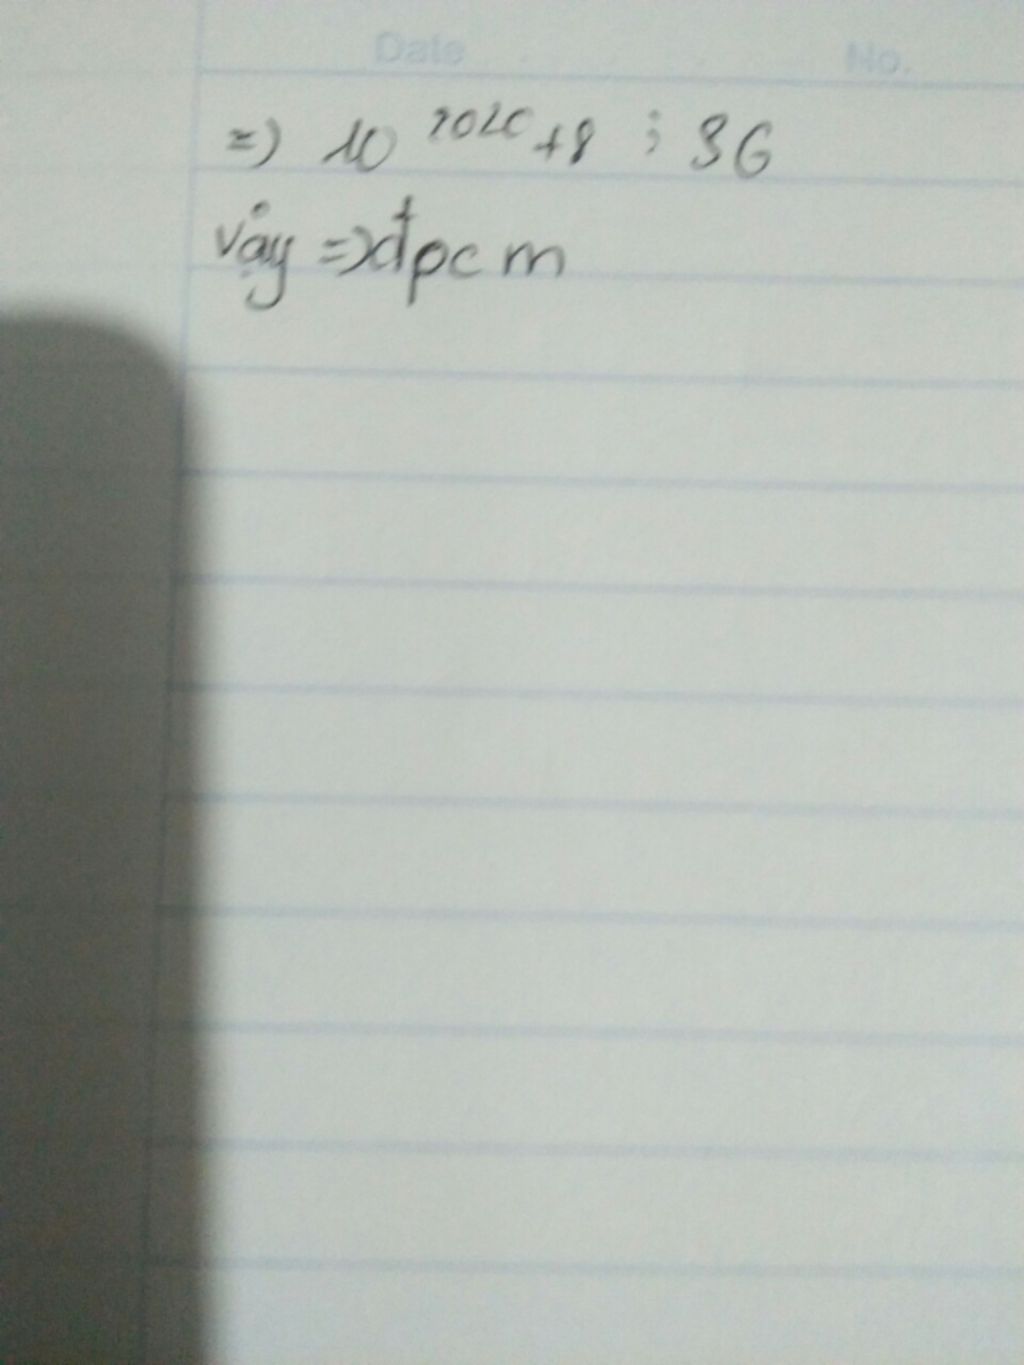 Date No.
=) 10^2020 + 8 ⋮ 36
vậy => đpcm